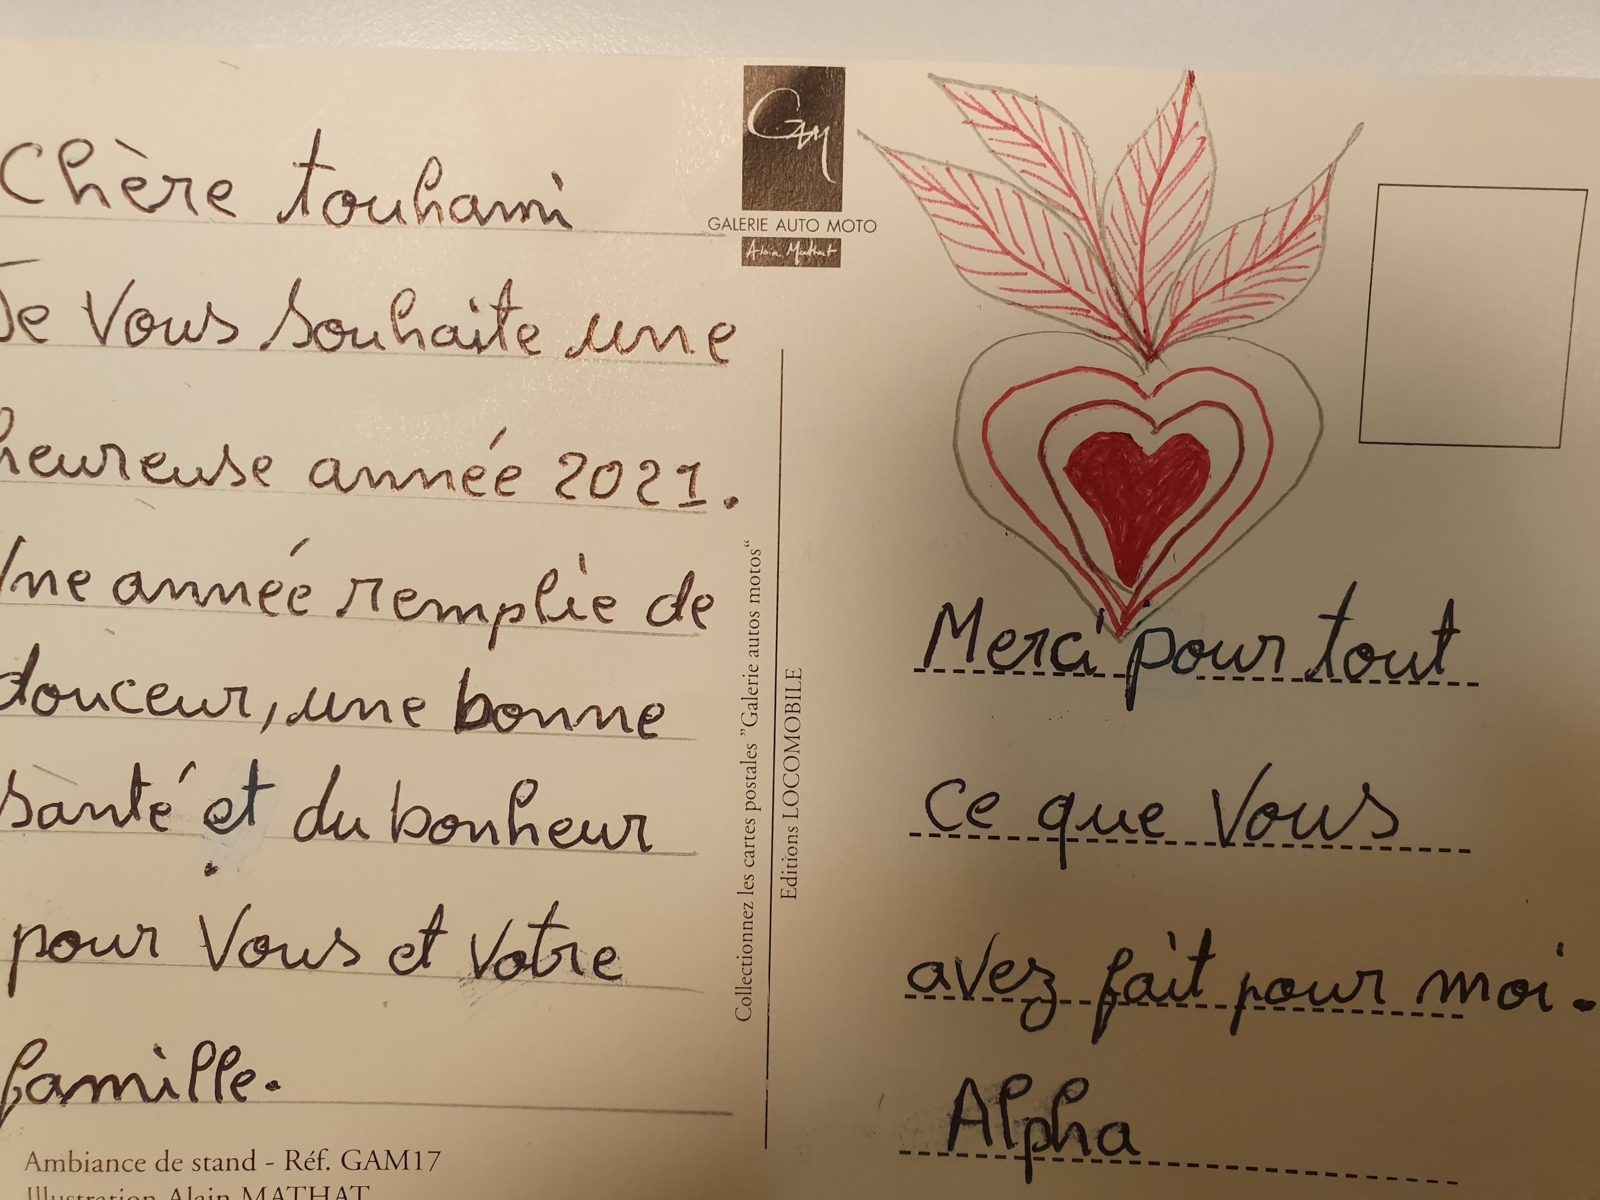 Chère touhami
Je Vous souhaite une
heureuse année 2021.
Une année remplie de
douceur, une bonne
santé et du bonheur
pour Vous et Votre
famille.
Ambiance de stand - Réf. GAM17
Illustration Alain MATHAT
GAM
GALERIE AUTO MOTO
Alain Mathat
Collectionnez les cartes postales "Galerie autos motos"
Editions LOCOMOBILE
Merci pour tout
ce que Vous
avez fait pour moi.
Alpha